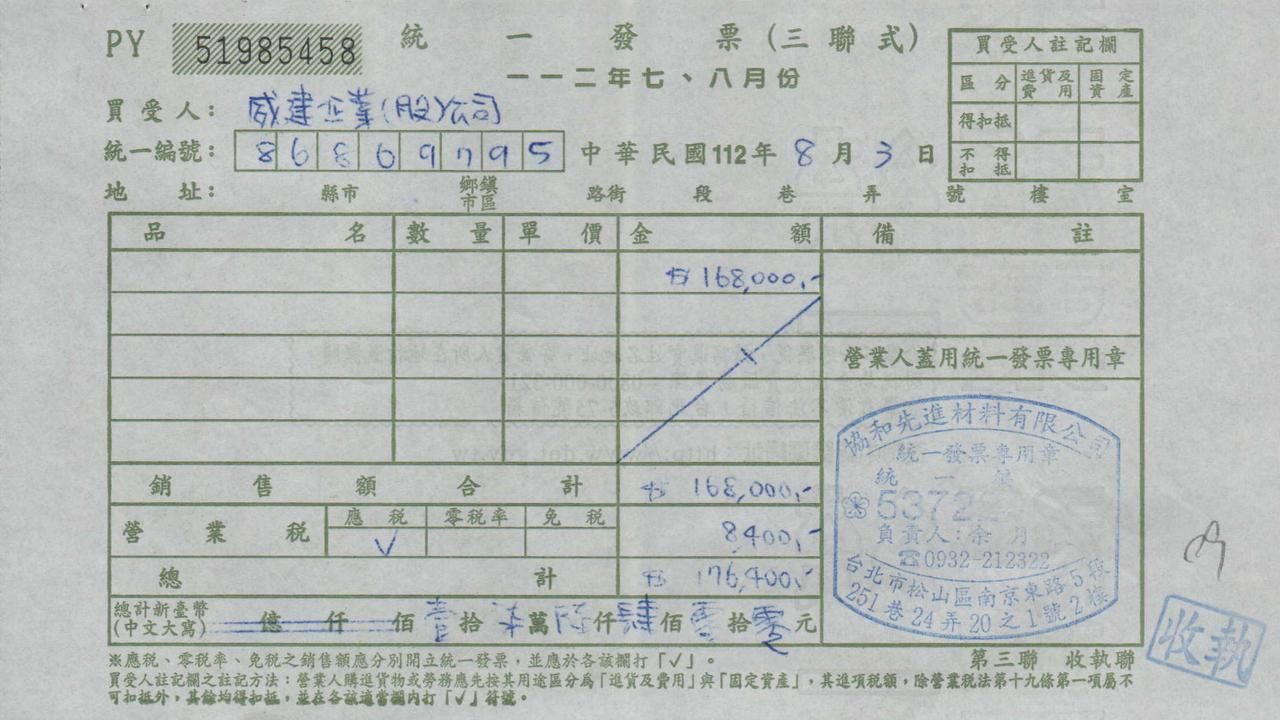 PY 51985458 統一發票(三聯式)
一一二年七、八月份
買受人註記欄
區分 進貨及費用 固定資產
得扣抵
不得扣抵
買受人: 威建企業(股)公司
統一編號: 86869795 中華民國112年8月3日
地址: 縣市 鄉鎮市區 路街 段 巷 弄 號 樓 室
品名 數量 單價 金額 備註
$168,000.-
營業人蓋用統一發票專用章
銷售額合計 $168,000.-
營業稅 應稅 零稅率 免稅 8,400.-
✓
總計 $176,400.-
總計新臺幣(中文大寫) 億仟佰壹拾柒萬陸仟肆佰零拾零元
協和先進材料有限公司
統一發票專用章
統一編
5372
負責人:余月
☎0932-212322
台北市松山區南京東路5段
251巷24弄20之1號2樓
※應稅、零稅率、免稅之銷售額應分別開立統一發票,並應於各該欄打「✓」。
第三聯 收執聯
買受人註記欄之註記方法:營業人購進貨物或勞務應先按其用途區分為「進貨及費用」與「固定資產」,其進項稅額,除營業稅法第十九條第一項屬不
可扣抵外,其餘均得扣抵,並在各該適當欄內打「✓」符號。
收執